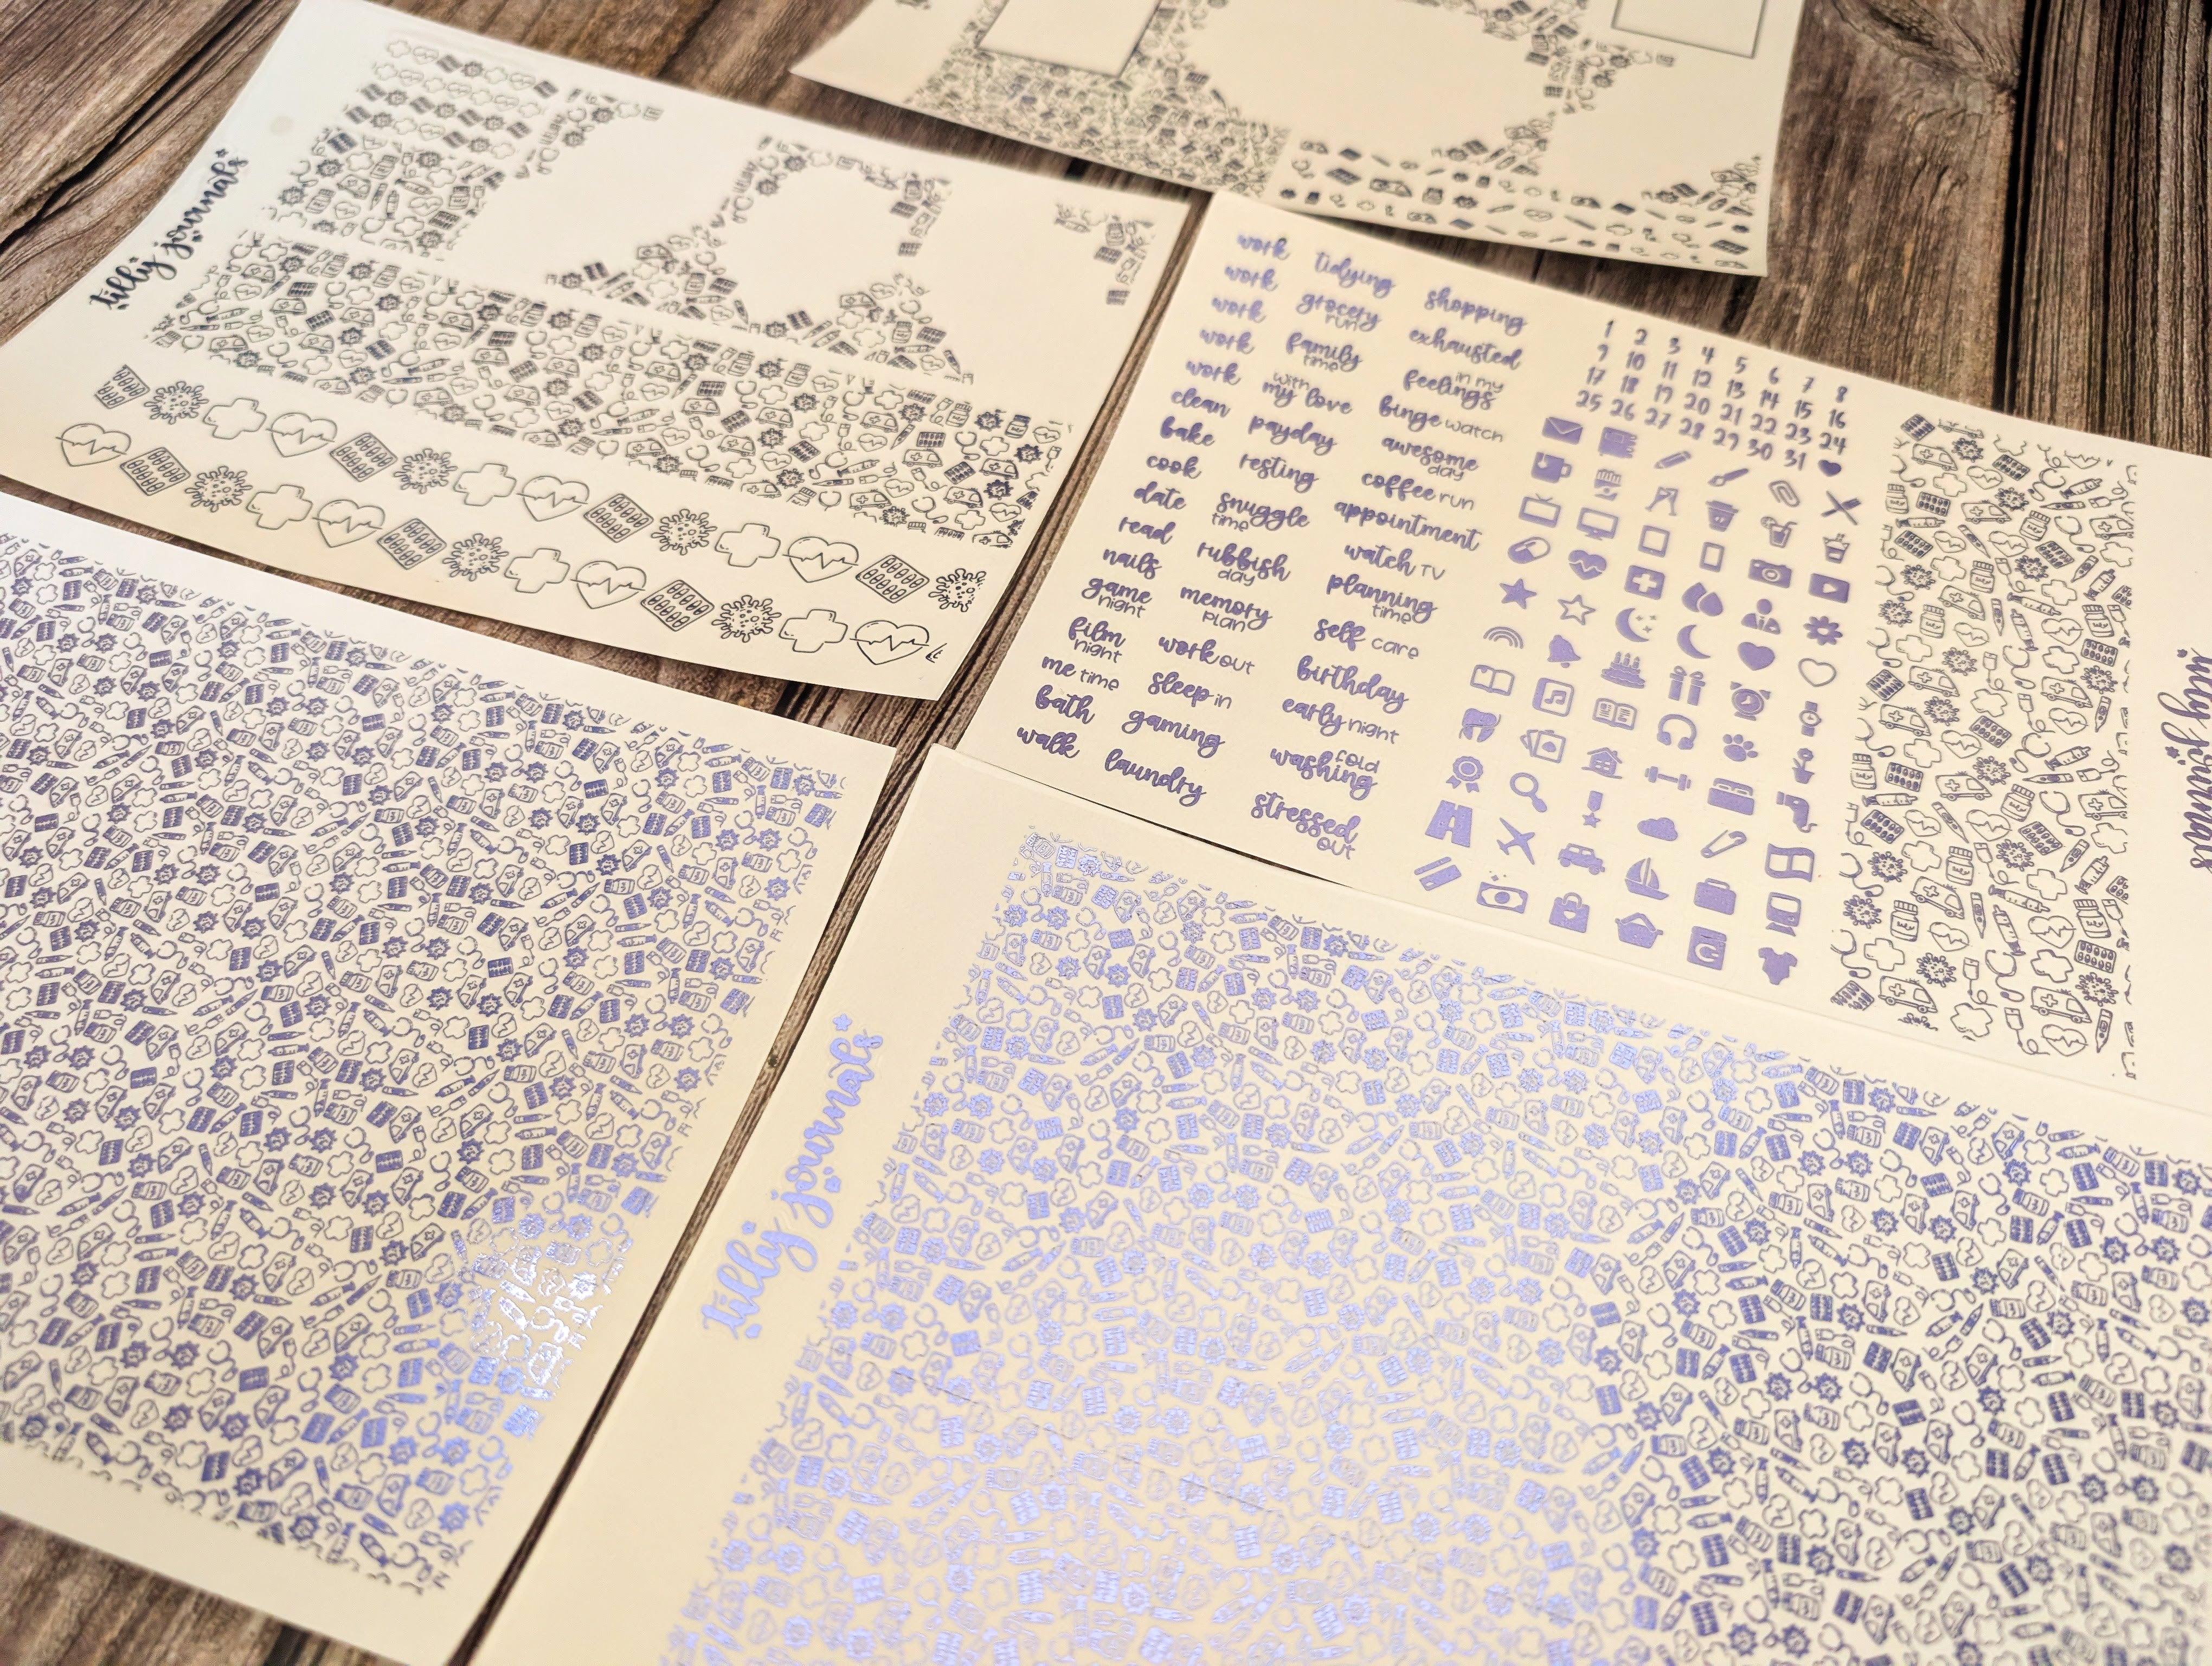 tilly journals
work
work
work
work
work
clean
bake
cook
date
read
nails
game night
film night
me time
bath
walk
tidying
grocery run
family time
with my love
payday
resting
snuggle time
rubbish day
memory plan
work out
sleep in
gaming
laundry
shopping
exhausted
in my feelings
binge watch
awesome day
coffee run
appointment
watch TV
planning time
self care
birthday
early night
fold washing
stressed out
1 2 3 4 5 6 7 8
9 10 11 12 13 14 15 16
17 18 19 20 21 22 23 24
25 26 27 28 29 30 31
tilly journals
tilly journals